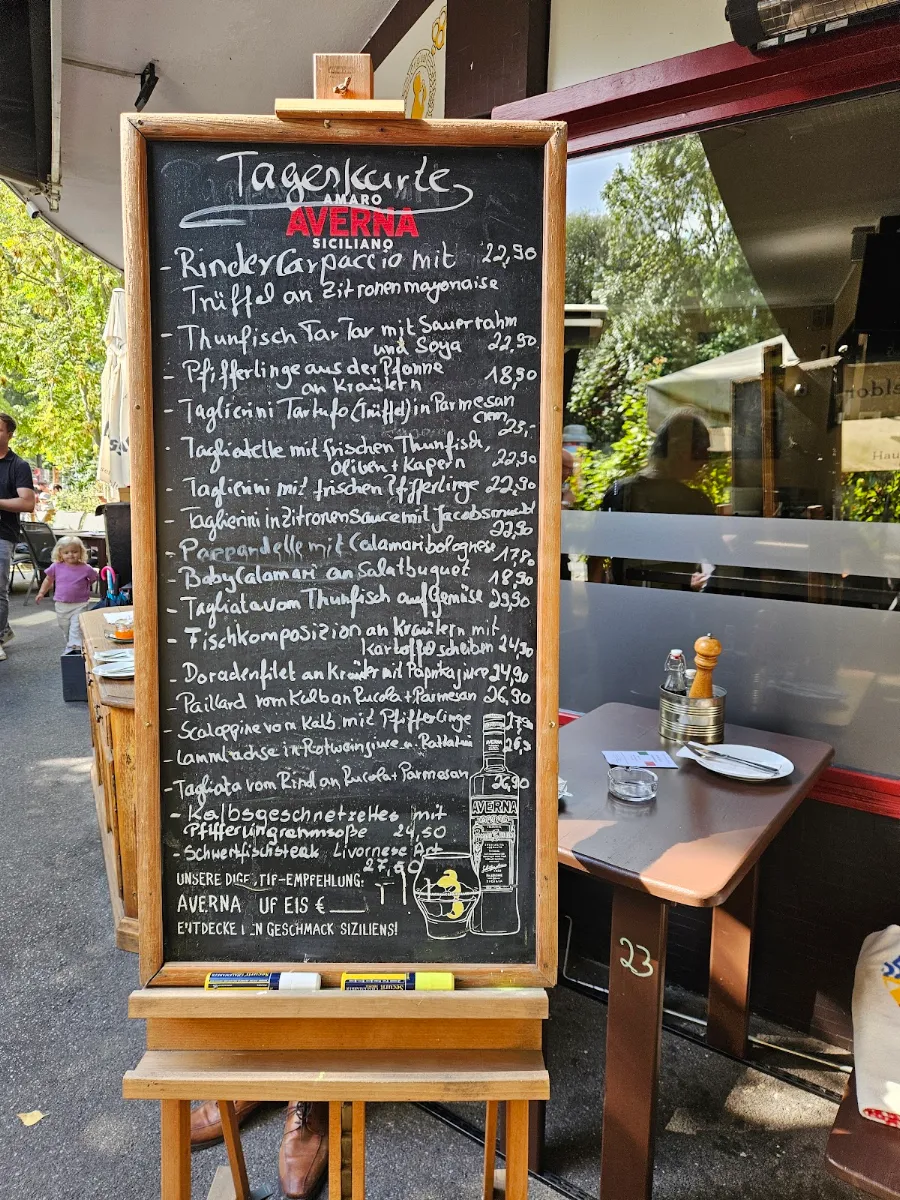 Tageskarte
AMARO
AVERNA
SICILIANO
- Rinder Carpaccio mit 22,90
Trüffel an Zitronenmayonaise
- Thunfisch TarTar mit Sauerrahm
und Soya 22,90
- Pfifferlinge aus der Pfanne
an Kräutern 18,90
- Taglierini Tartufo (Trüffel) in Parmesan
23,-
- Tagliatelle mit frischen Thunfisch,
Oliven + Kapern 22,90
- Taglierini mit frischen Pfifferlinge 22,90
- Taglierini in Zitronensauce mit
23,90
- Pappardelle mit Calamari bolognese
17,80
- Baby Calamari an Salatbuquet 18,90
- Tagliata vom Thunfisch auf Gemüse 29,90
- Fischkomposizion an Kräutern mit
Kartoffelscheiben 24,90
- Doradenfilet an Kräuter mit Paprikajuce 24,90
- Paillard vom Kalb an Rucola + Parmesan 26,90
- Scaloppine von Kalb mit Pfifferlinge 27,90
- Lammlachse in Rotweinjuce 26,90
- Tagliata vom Rind an Rucola + Parmesan 26,90
- Kalbsgeschnetzeltes mit
Pfifferlingrahmsoße 24,50
- Schwertfischsteak Livornese Art
27,50
UNSERE DIGE TIF-EMPFEHLUNG:
AVERNA UF EIS € ____
ENTDECKE N GESCHMACK SIZILIENS!
AVERNA
AVERNA
23